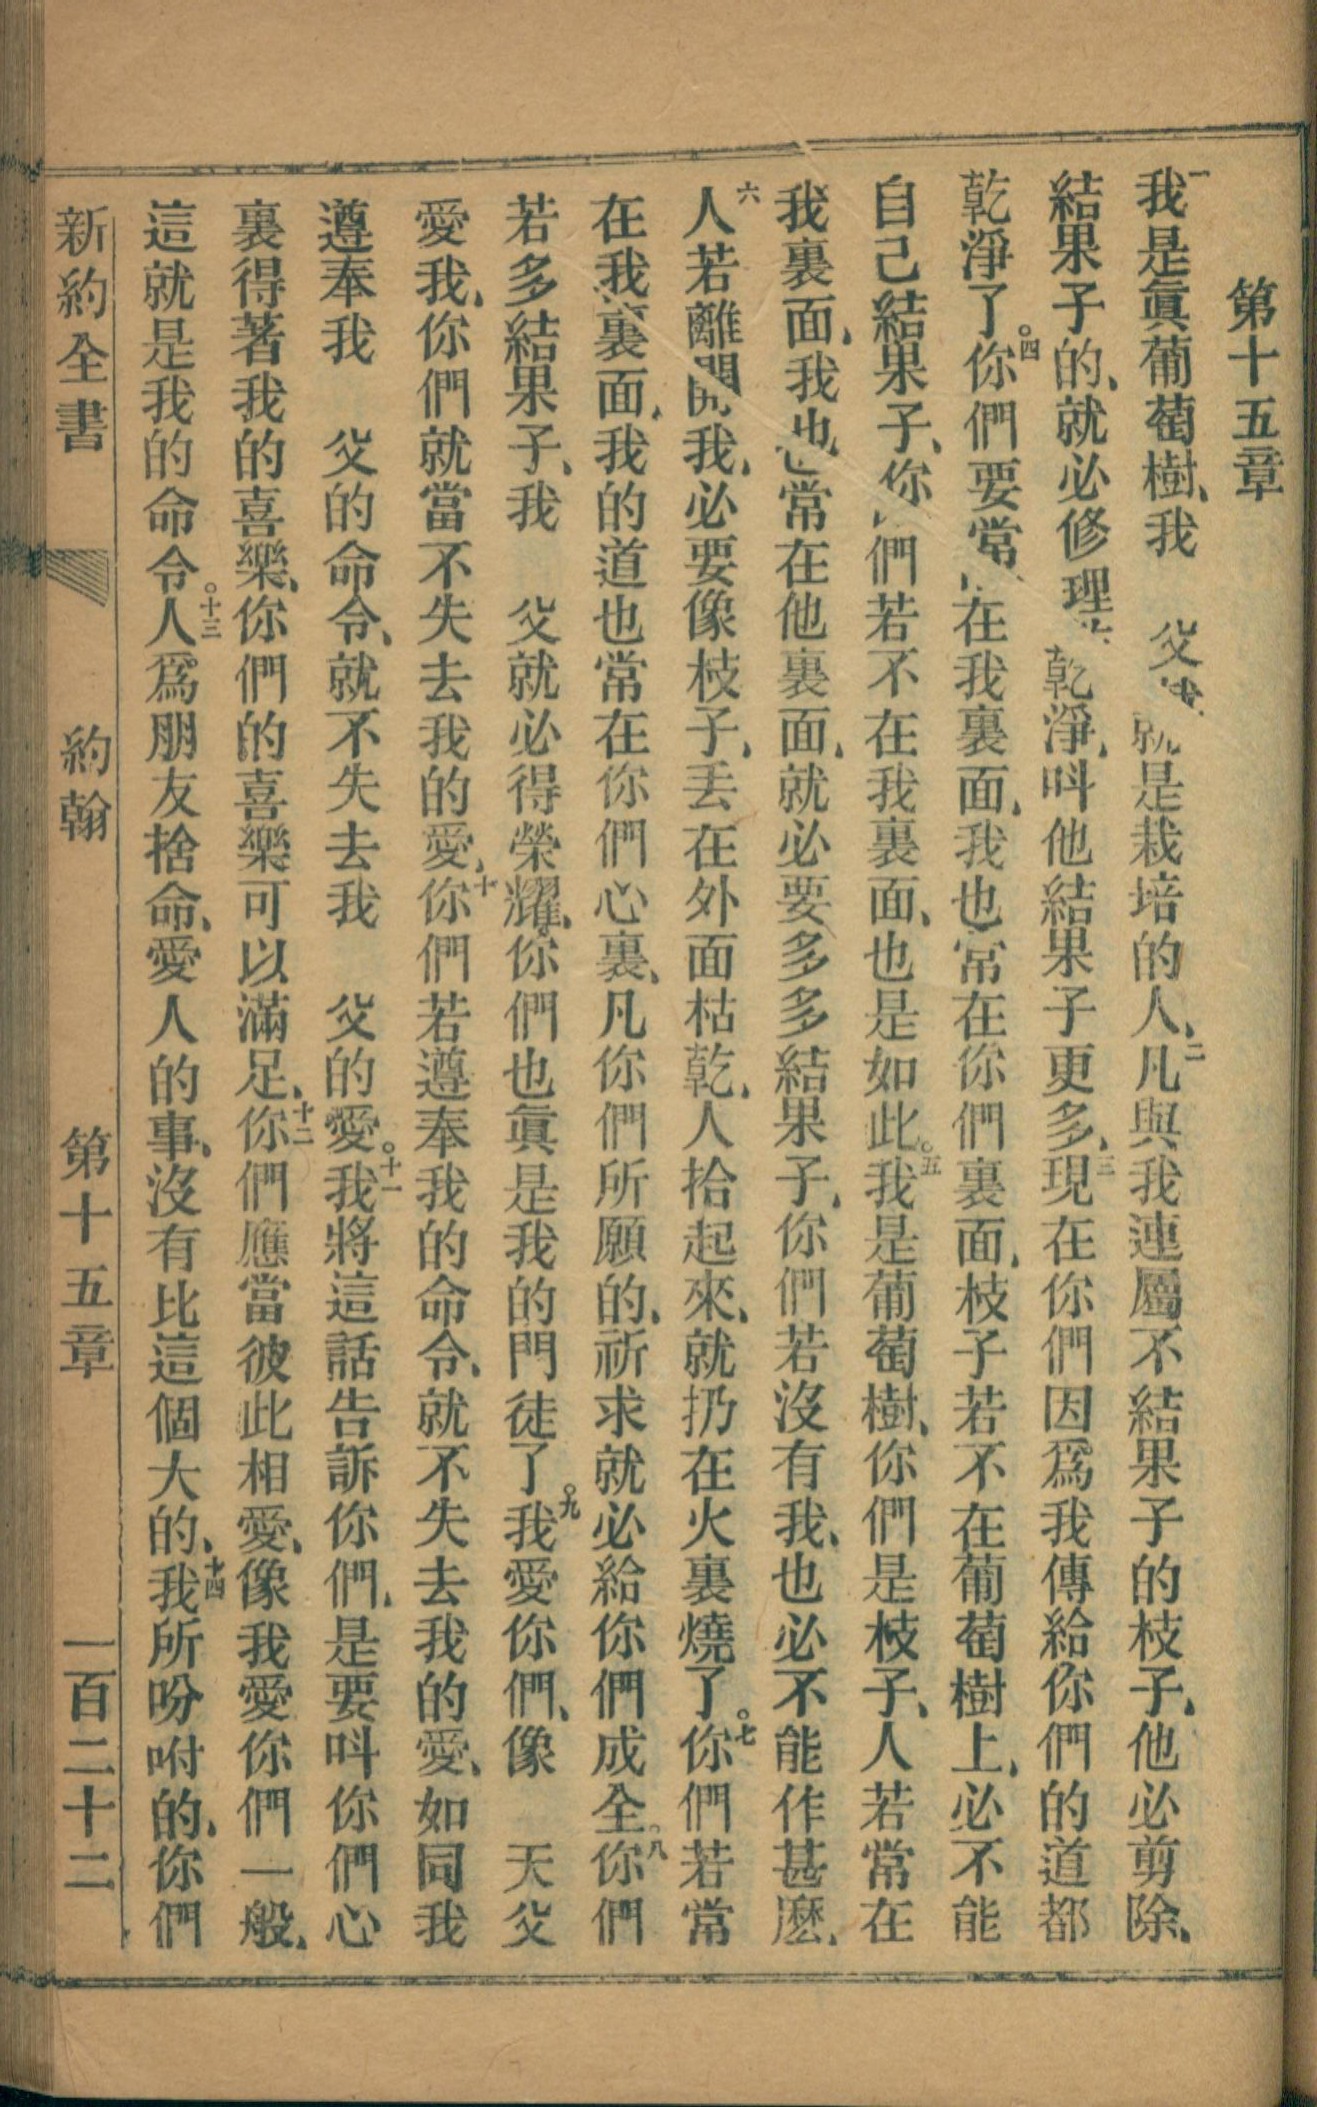 第十五章
一我是眞葡萄樹、我 父就是栽培的人、二凡與我連屬不結果子的枝子、他必剪除、
結果子的、就必修理乾淨、呌他結果子更多、三現在你們因爲我傳給你們的道都
乾淨了。四你們要常在我裏面、我也常在你們裏面、枝子若不在葡萄樹上、必不能
自己結果子、你們若不在我裏面、也是如此。五我是葡萄樹、你們是枝子、人若常在
我裏面、我也常在他裏面、就必要多多結果子、你們若沒有我、也必不能作甚麽、
六人若離開我、必要像枝子、丟在外面枯乾、人拾起來、就扔在火裏燒了。七你們若常
在我裏面、我的道也常在你們心裏、凡你們所願的、祈求就必給你們成全。八你們
若多結果子、我 父就必得榮耀、你們也眞是我的門徒了。九我愛你們、像 天父
愛我、你們就當不失去我的愛、十你們若遵奉我的命令、就不失去我的愛、如同我
遵奉我 父的命令、就不失去我 父的愛。十一我將這話告訴你們、是要呌你們心
裏得著我的喜樂、你們的喜樂可以滿足、十二你們應當彼此相愛、像我愛你們一般、
這就是我的命令。十三人爲朋友捨命、愛人的事、沒有比這個大的、十四我所吩咐的、你們
新約全書 約翰 第十五章 一百二十二